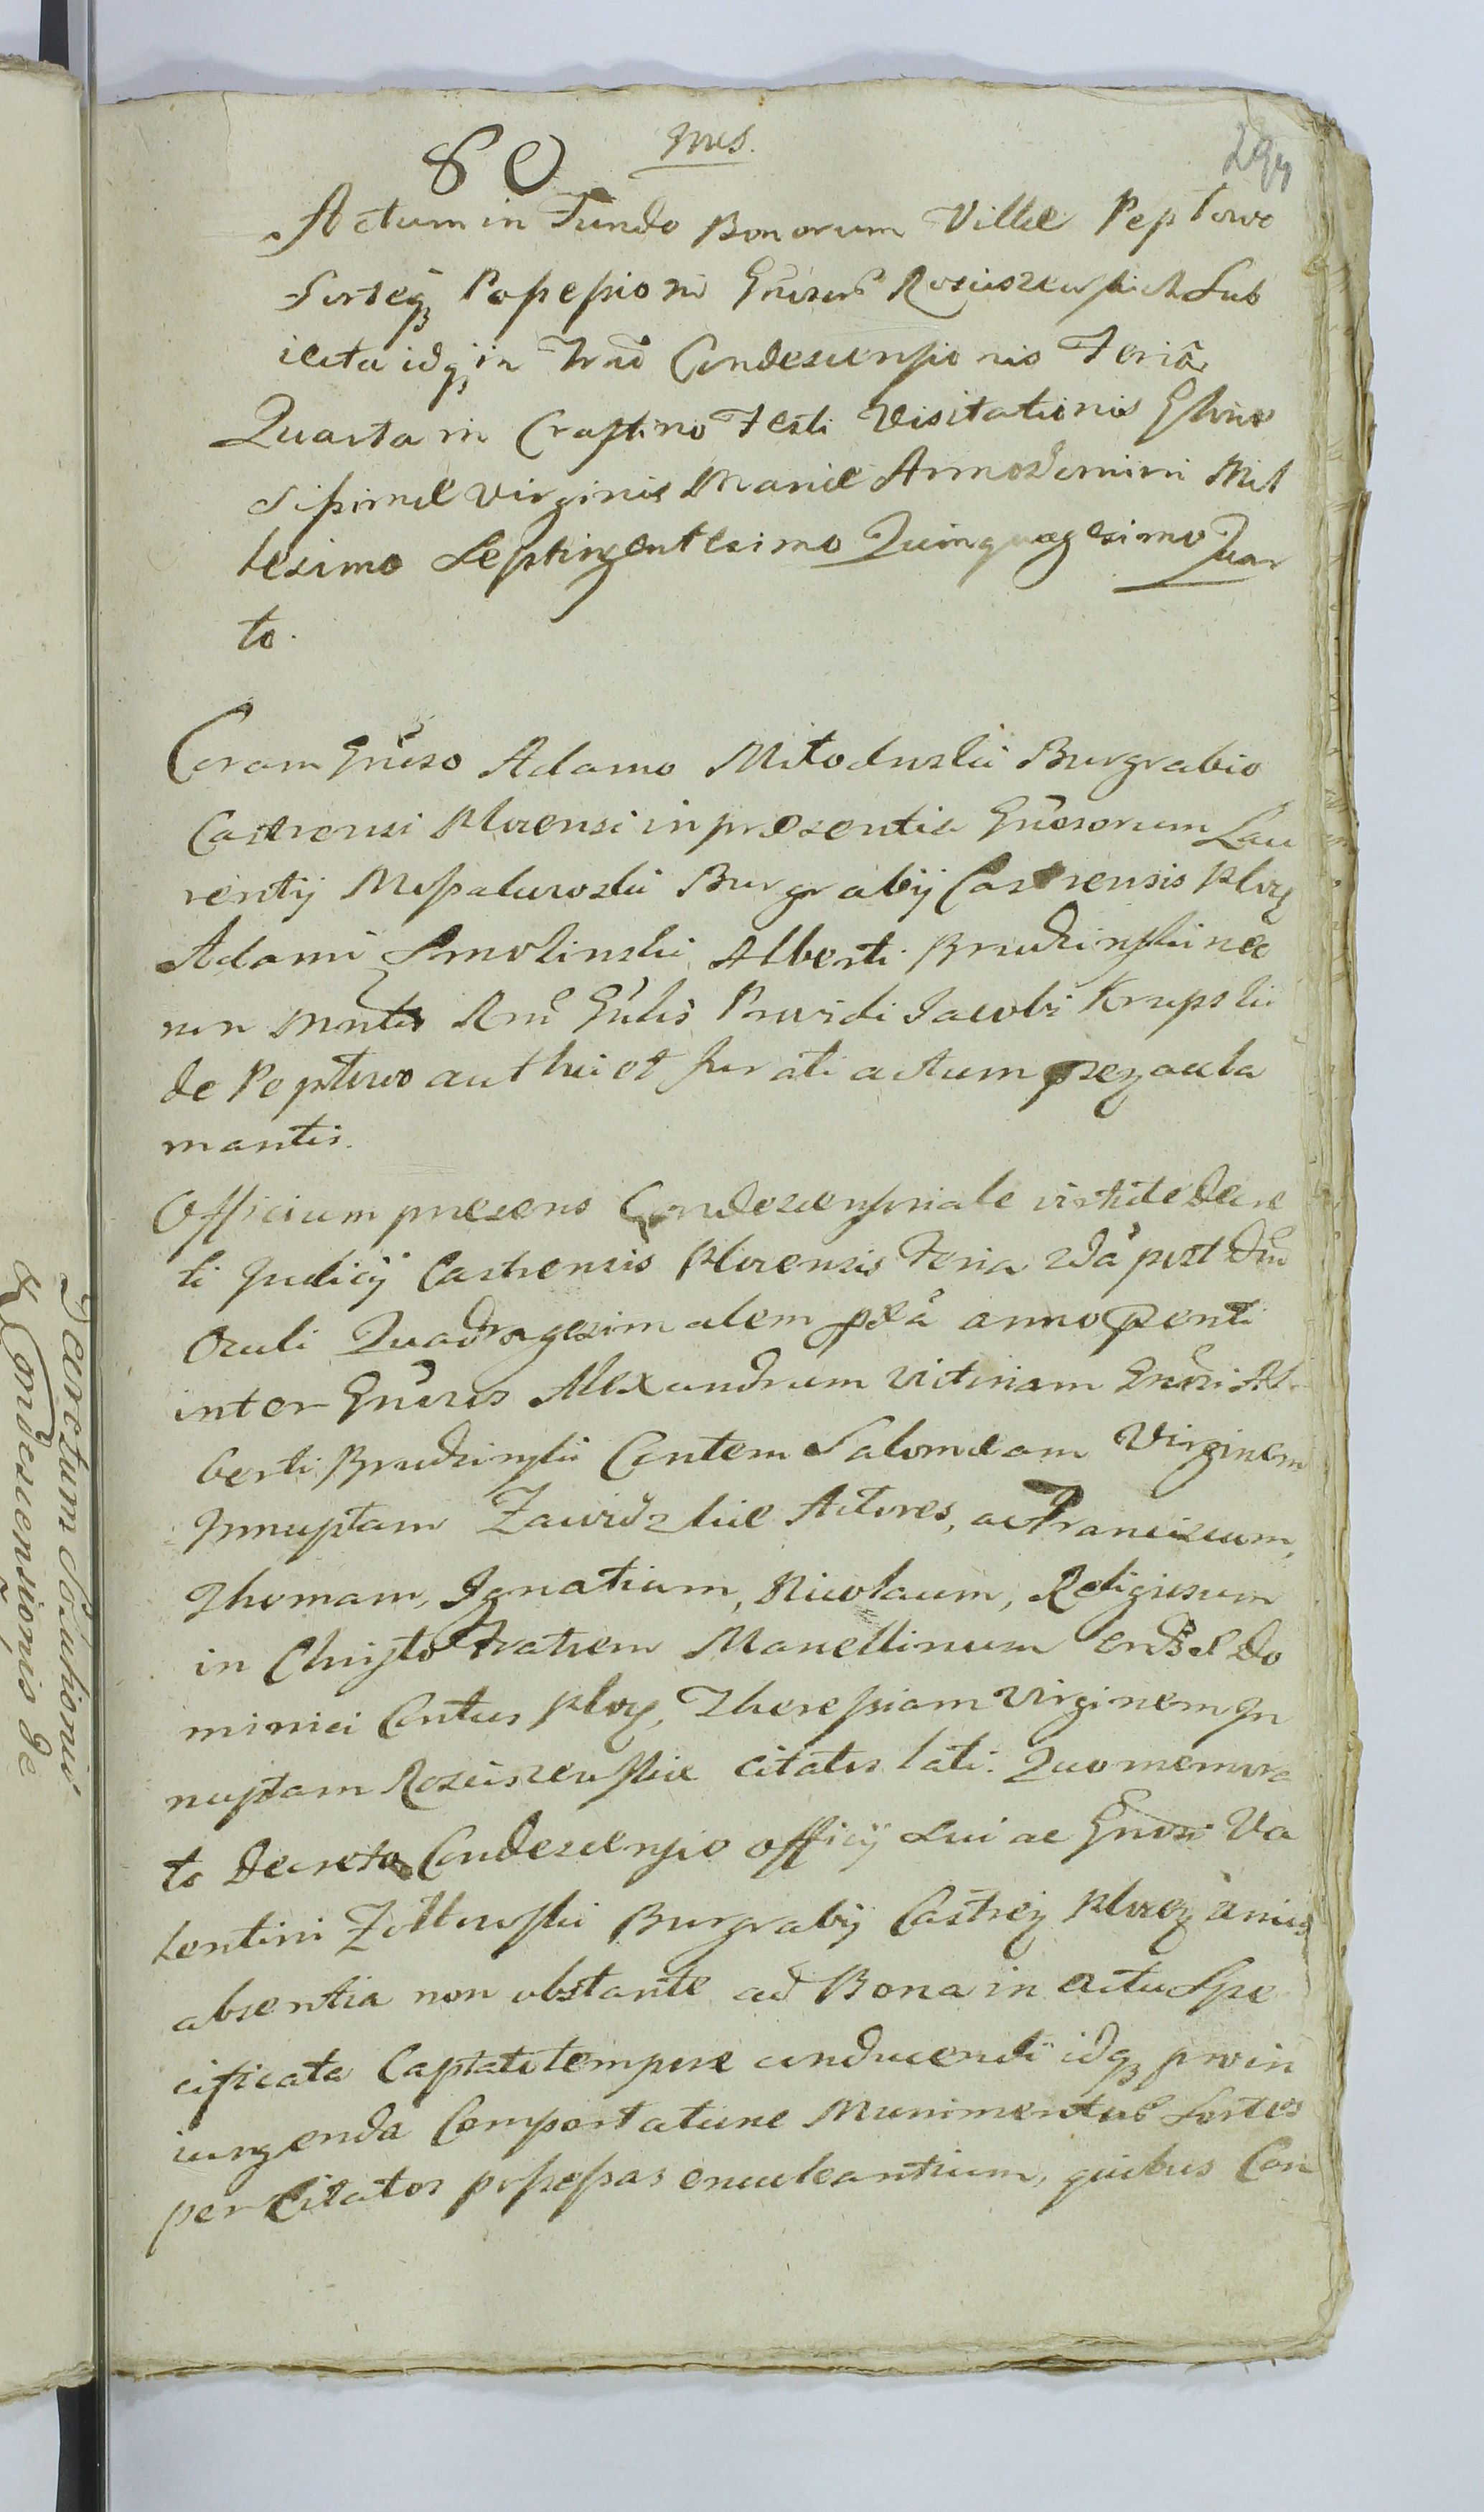 80 mes.
Actum in Fundo Bonorum Villæ Peptowo
Sorteq Possessioni Gnõsor Rosciszewskich Sub
iecta idq in Trnõ Condescensionis Feria
Quarta in Crastino Festi Visitationis Glorio
sissimæ Virginis Mariæ Anno Domini Mil
lesimo Septingentesimo Quinquagesimo Quar
to.
Coram Gnõso Adamo Młoduski Burgrabio
Castrensi Plocensi in præsentia Gnõsorum Lau
rentij Burgrabij Castrensis Ploc
Adami Smolinski Alberti Brudzinski nec
non Mntrlis Rni Gnlis Providi Jacobi Krupski
de Peptowo authci et Jurati actum prez acla
mantis.
Officium præsens Condescensoriale virtute Decre
ti Judicij Castrensis Plocensis Feria 2dâ post Dnĩ
Oculi Quadragesimalem pxâ anno pñti
inter Gnõsos Alexandrum Victoriam Gnõsi Al
berti Brudzinski Contem Salomeam Virginem
Innuptam Zawidzkie Actores, ac Franciscum,
Thomam, Ignatium, Nicolaum, Religiosum
in Christo Fratrem Marcellinum Ord S Do
minici Contus Ploc, Theressiam Virginem In
nuptam Rosciszewskie Citatos lati. Quo memora
to Decreto Condescensio officij Sui ac Gnõsi Va
lentini Zołtowski Burgrabij Castrez Plocez
absentia non obstante ad Bona in actu Spe
cificata Captato tempore conducendi idq pro in
iungenda Comportatione Munimentor Sortes
per Citatos possessas enucleantium, quibus Com
Decretum Solutionis
& Condescensionis